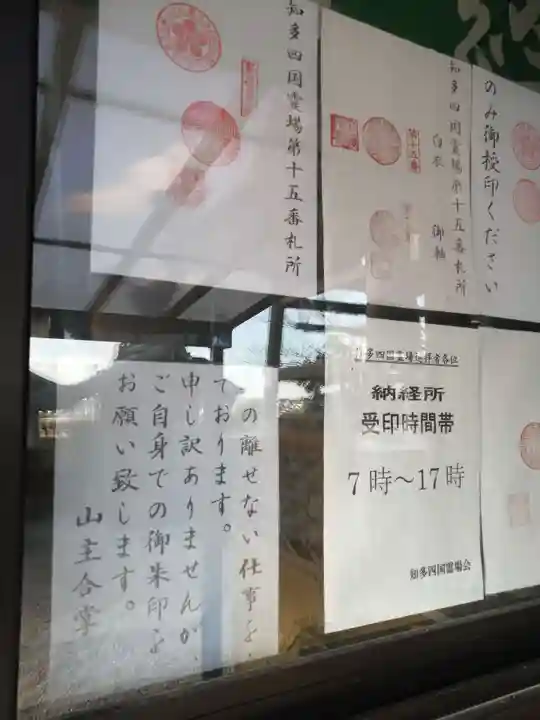 のみ御授印ください
知多四国霊場第十五番札所
白衣 御軸
第十五番
知多四国霊場第十五番札所
知多四国霊場巡拝者各位
納経所
受印時間帯
7時～17時
知多四国霊場会
の離せない仕事を
ております。
申し訳ありませんが、
ご自身での御朱印を
お願い致します。
山主合掌